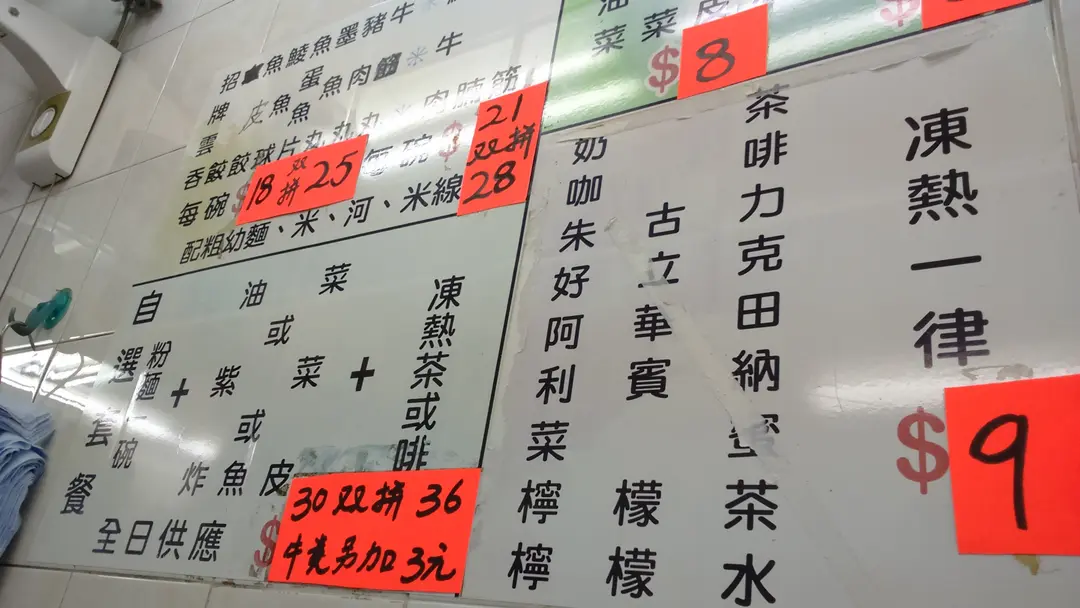 招牌雲吞
魚皮餃
鯪魚球
魚片
墨魚丸
豬肉丸
牛筋丸
牛腩
筋
每碗 $ 18 双拼 25
每碗 $ 21 双拼 28
配粗幼麵、米、河、米線
油菜
菜
皮
$ 8
$
自選套餐
粉麵一碗 + 油菜或紫菜或炸魚皮 + 凍熱茶或啡
全日供應 $ 30 双拼 36
牛麦另加3元
奶茶
咖啡
朱古力
好立克
阿華田
利賓納
菜蜜
檸檬茶
檸檬水
凍熱一律 $ 9